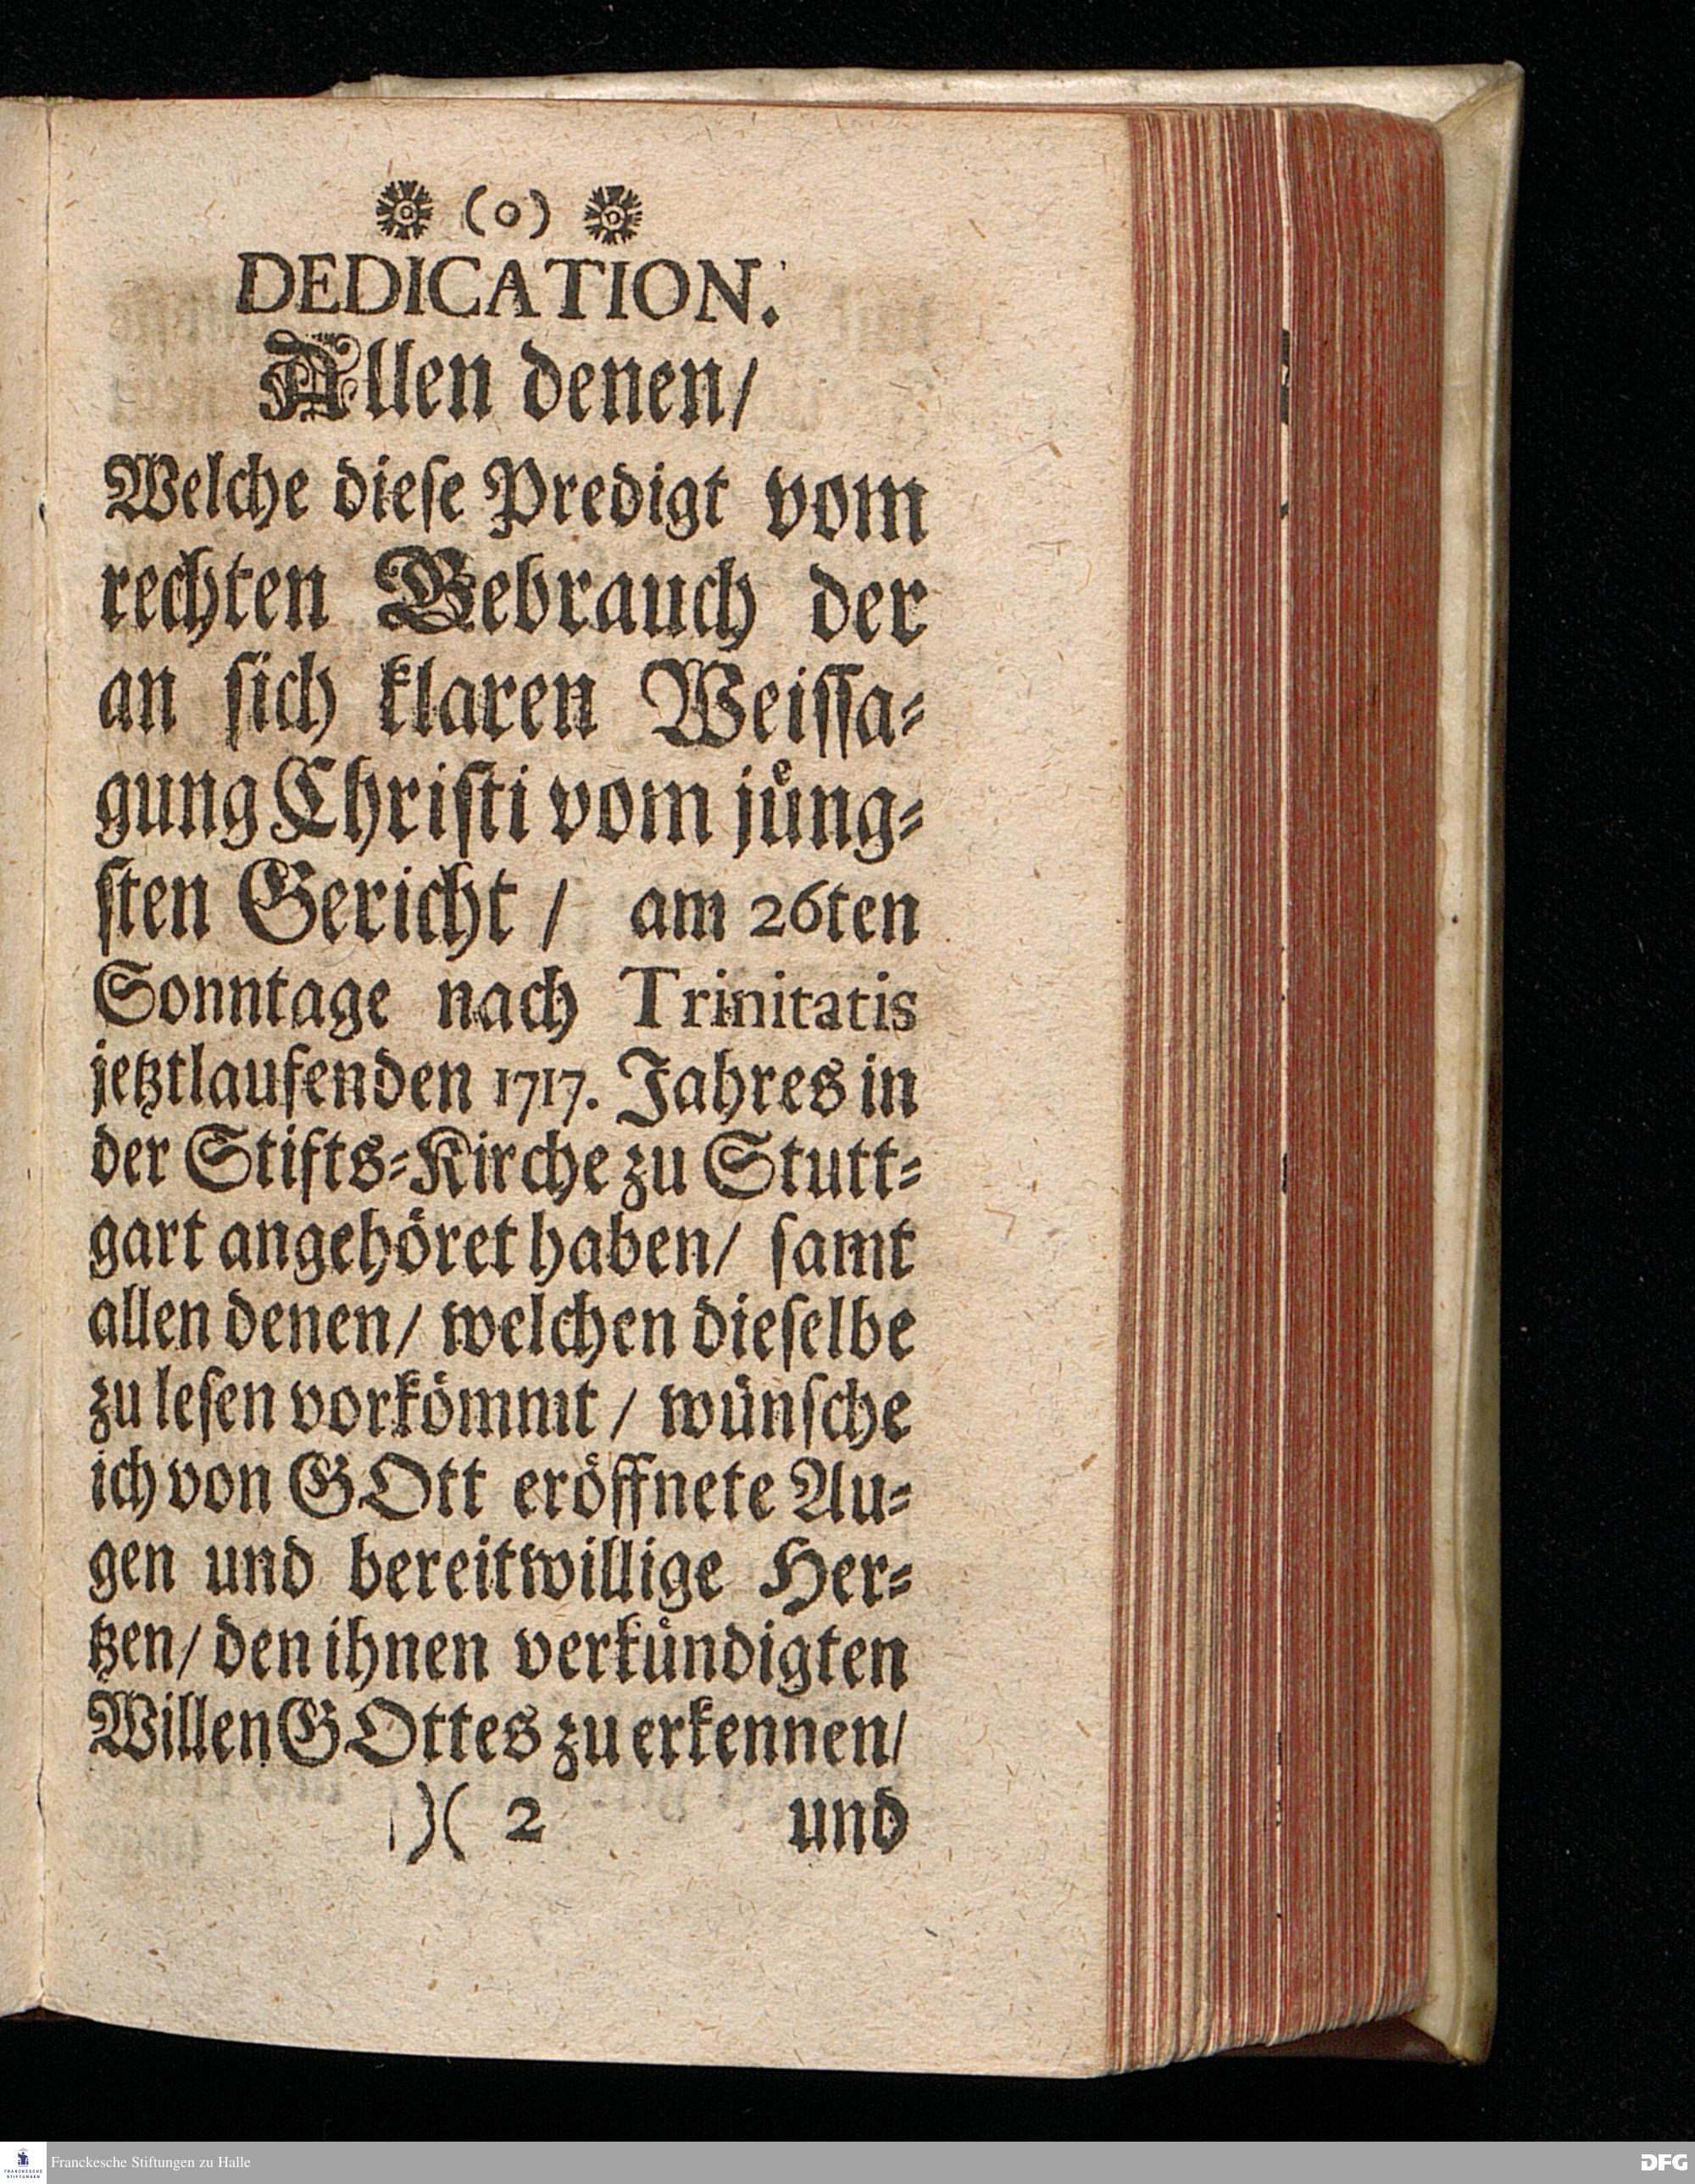 (o)
DEDICATION.
Allen denen/
Welche dieſe Predigt vom
rechten Gebrauch der
an ſich klaren Weiſſa⸗
gung Chriſti vom juͤng⸗
ſten Gericht / am 26ten
Sonntage nach Trinitatis
jetztlaufenden 1717. Jahres in
der Stifts⸗Kirche zu Stutt⸗
gart angehöret haben/ ſamt
allen denen/ welchen dieſelbe
zu leſen vorkömmt / wünſche
ich von GOtt eröffnete Au⸗
gen und bereitwillige Her⸗
tzen/ den ihnen verkündigten
Willen GOttes zu erkennen/
)( 2 und
FRANCKESCHE STIFTUNGEN
Franckesche Stiftungen zu Halle
DFG